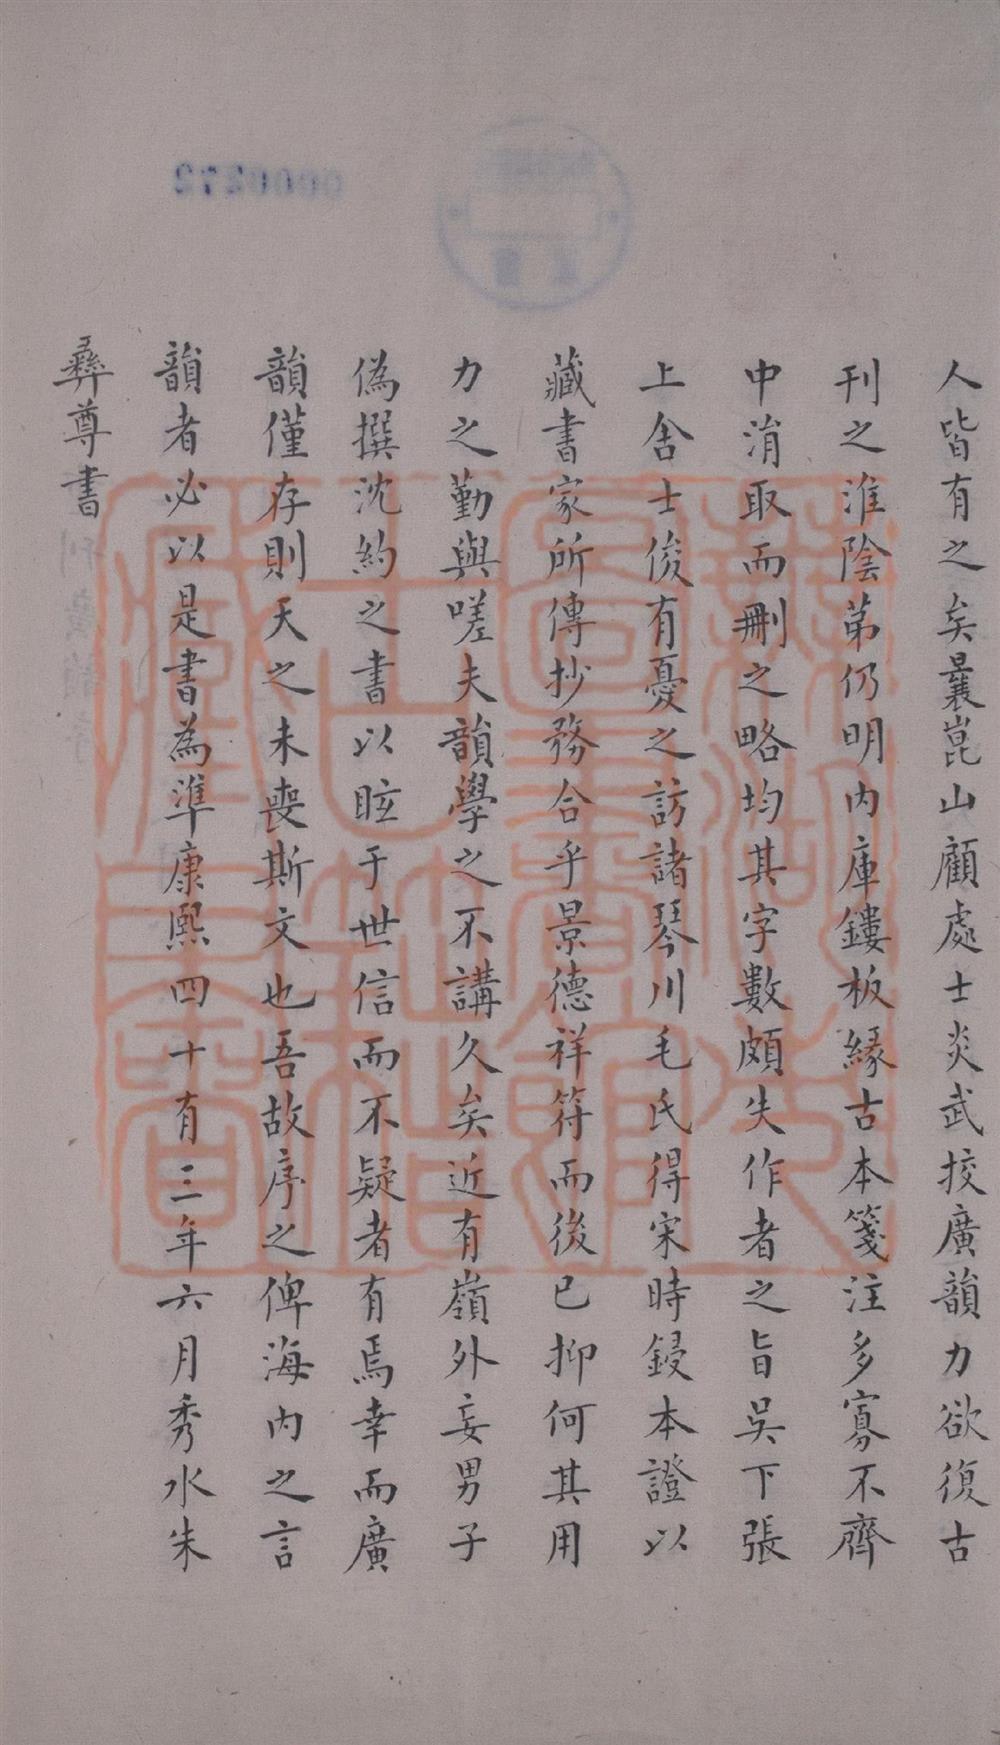 人皆有之矣曩崑山顧處士炎武挍廣韻力欲復古
刊之淮陰第仍明內庫鏤板緣古本箋注多寡不齊
中涓取而刪之略均其字數頗失作者之旨吳下張
上舍士俊有憂之訪諸琴川毛氏得宋時鋟本證以
藏書家所傳抄務合乎景德祥符而後已抑何其用
力之勤與嗟夫韻學之不講久矣近有嶺外妄男子
偽撰沈約之書以眩于世信而不疑者有焉幸而廣
韻僅存則天之未喪斯文也吾故序之俾海內之言
韻者必以是書為準康熙四十有三年六月秀水朱
彝尊書
0000272